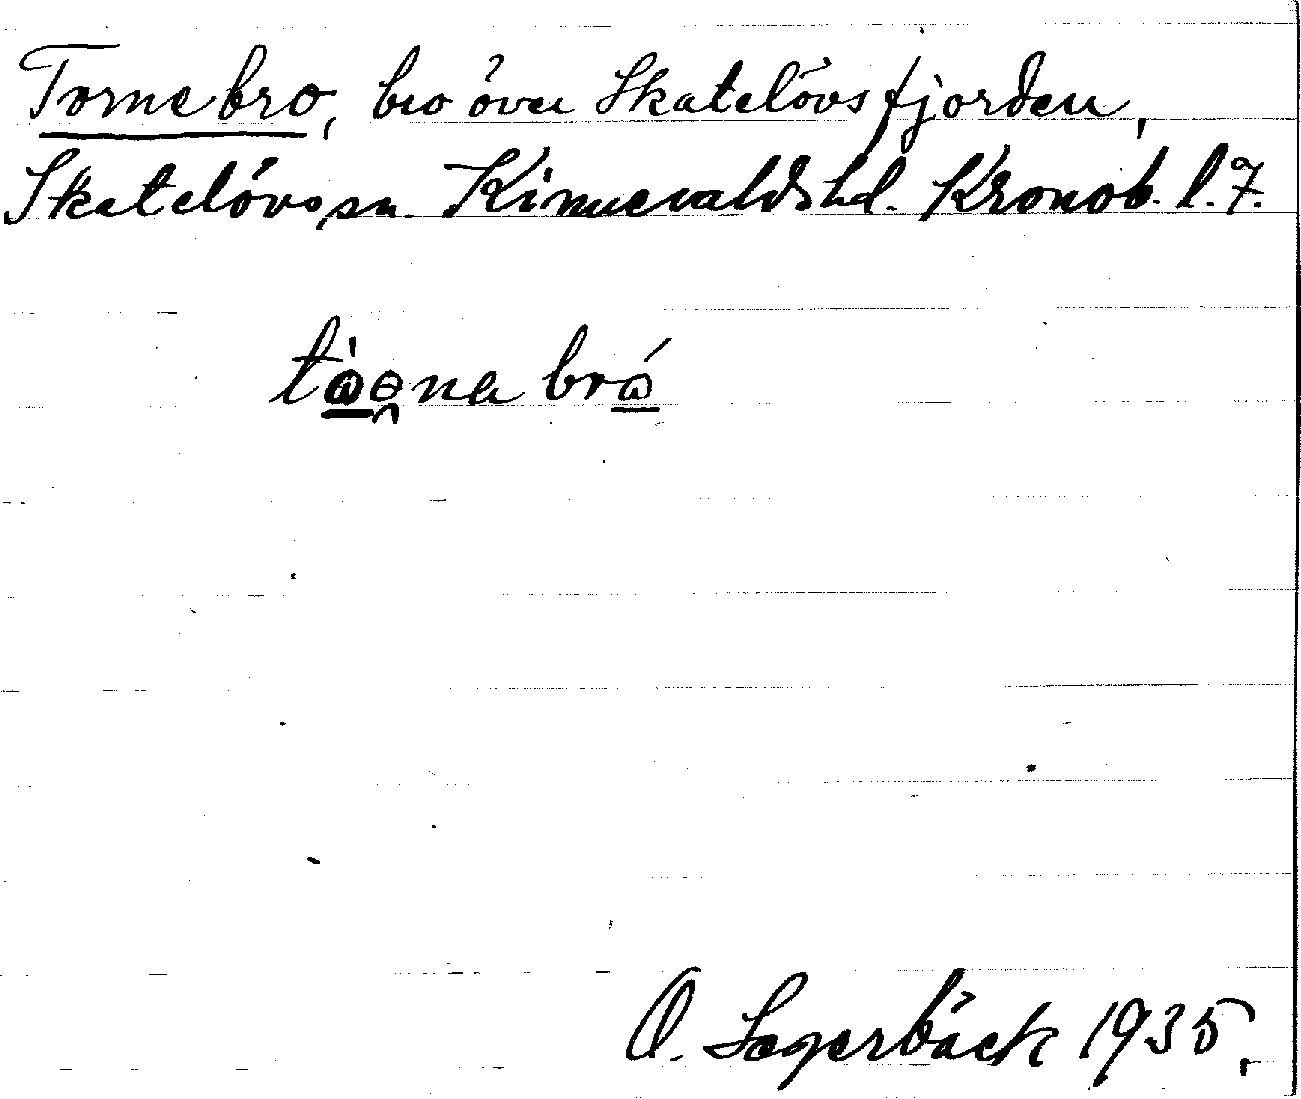 Tornebro, bro över Skatelövsfjorden,
Skatelövs sn. Kinnevalds hd. Kronob. l. 7.
tàə̯na brá
O. Lagerbäck 1935.